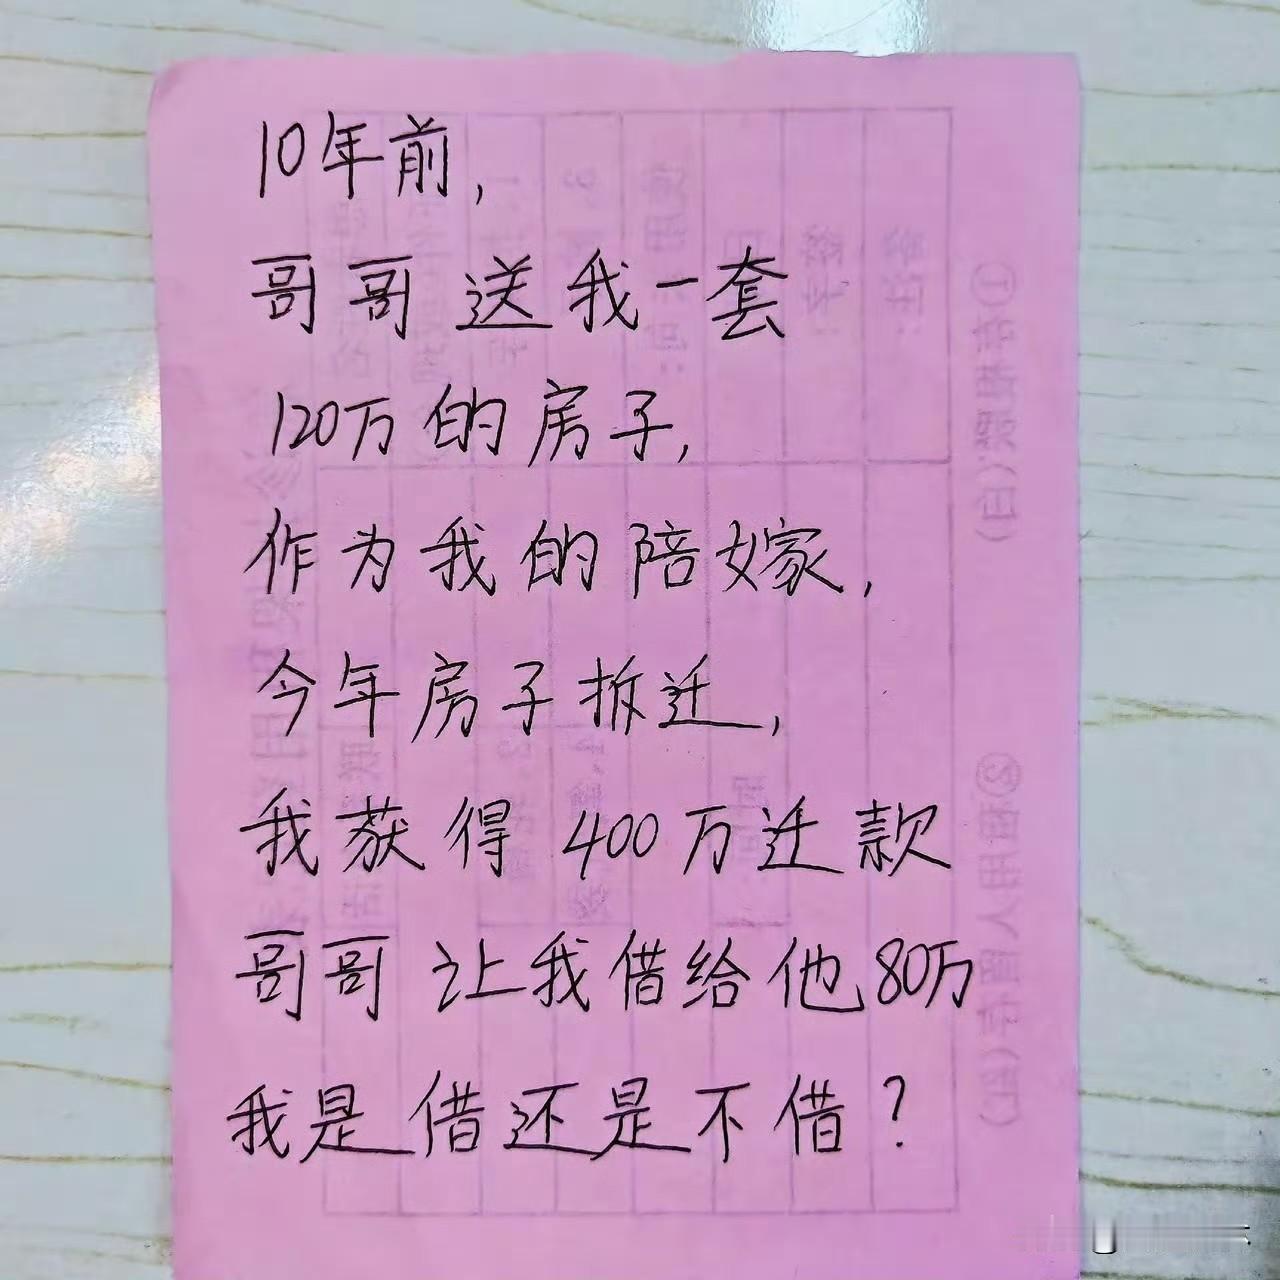 10年前,
哥哥送我一套
120万的房子,
作为我的陪嫁,
今年房子拆迁,
我获得400万迁款
哥哥让我借给他80万
我是借还是不借?